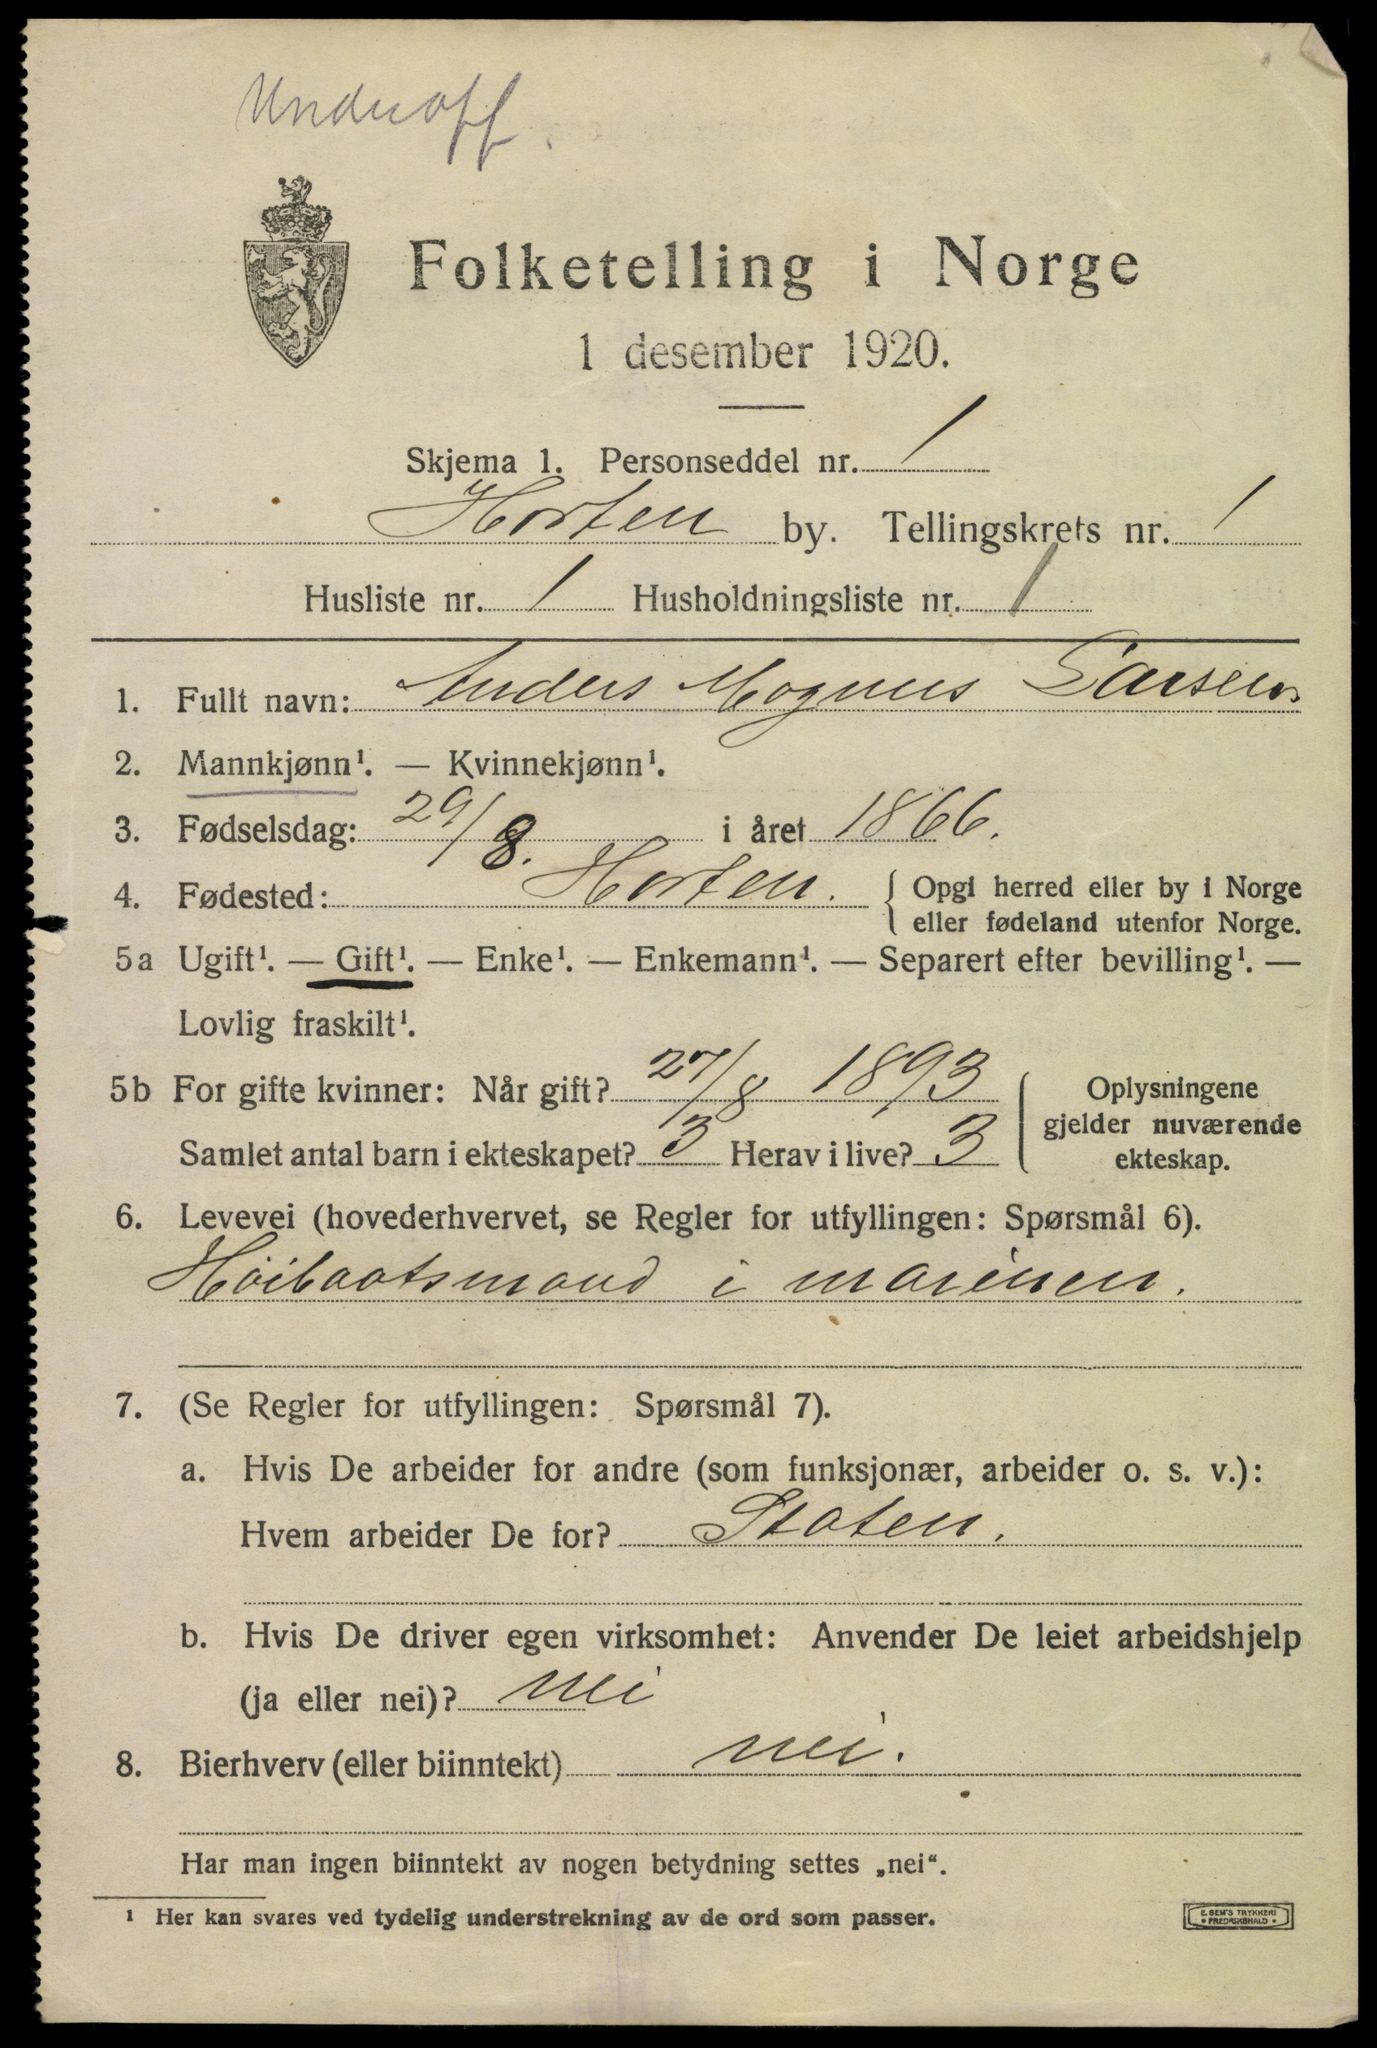 Underoff.
Folketelling i Norge
1 desember 1920.
Skjema 1. Personseddel nr. 1
Horten by. Tellingskrets nr. 1
Husliste nr. 1 Husholdningsliste nr. 1
1. Fullt navn: Anders Magnus Larsen
2. Mannkjønn¹. — Kvinnekjønn¹.
3. Fødselsdag: 29/8. i året 1866.
4. Fødested: Horten. { Opgi herred eller by i Norge
eller fødeland utenfor Norge.
5a Ugift¹. — Gift¹. — Enke¹. — Enkemann¹. — Separert efter bevilling¹. —
Lovlig fraskilt¹.
5b For gifte kvinner: Når gift? 27/8 1893
Samlet antal barn i ekteskapet? 3 Herav i live? 3
Oplysningene
gjelder nuværende
ekteskap.
6. Levevei (hovederhvervet, se Regler for utfyllingen: Spørsmål 6).
Høibaatsmand i marinen.
7. (Se Regler for utfyllingen: Spørsmål 7).
a. Hvis De arbeider for andre (som funksjonær, arbeider o. s. v.):
Hvem arbeider De for? Staten.
b. Hvis De driver egen virksomhet: Anvender De leiet arbeidshjelp
(ja eller nei)? nei
8. Bierhverv (eller biinntekt) nei.
Har man ingen biinntekt av nogen betydning settes „nei“.
¹ Her kan svares ved tydelig understrekning av de ord som passer.
E. SEM'S TRYKKERI
• FREDRIKSHALD •